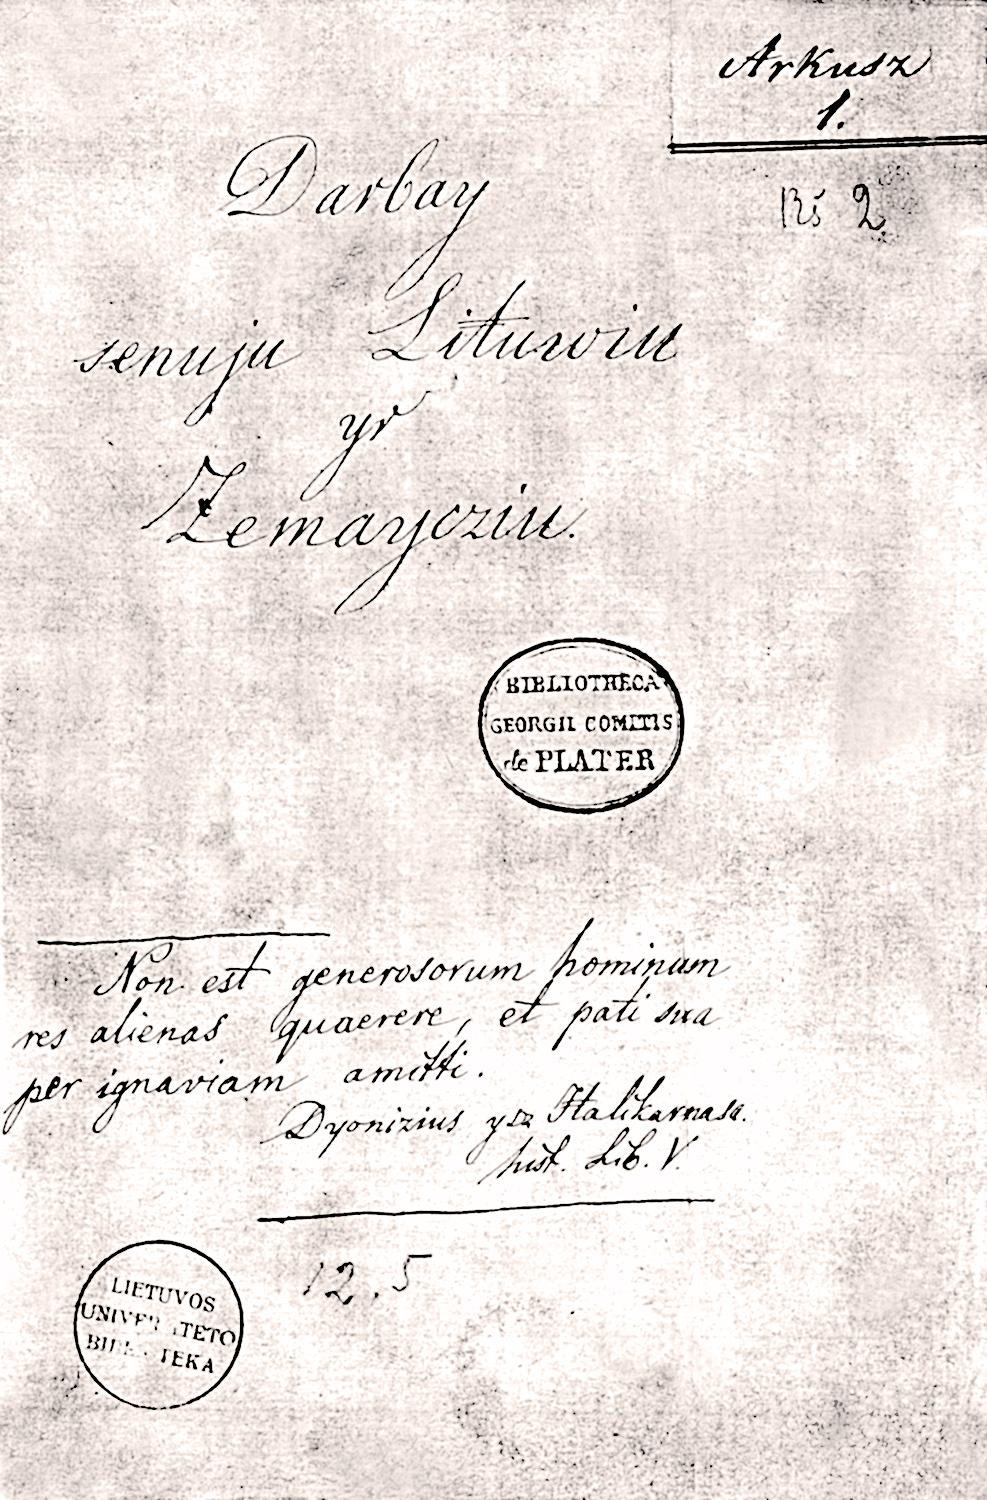 Arkusz
1.
Rš 2
Darbay
senuju Lituwiu
yr
Żemaycziu.
BIBLIOTHECA
GEORGII COMITIS
de PLATER
Non est generosorum hominum
res alienas quaerere, et pati sua
per ignaviam amitti.
Dyonizius ysz Halikarnasa.
hist. Lib. V.
12.5
LIETUVOS
UNIVERSITETO
BIBLIOTEKA